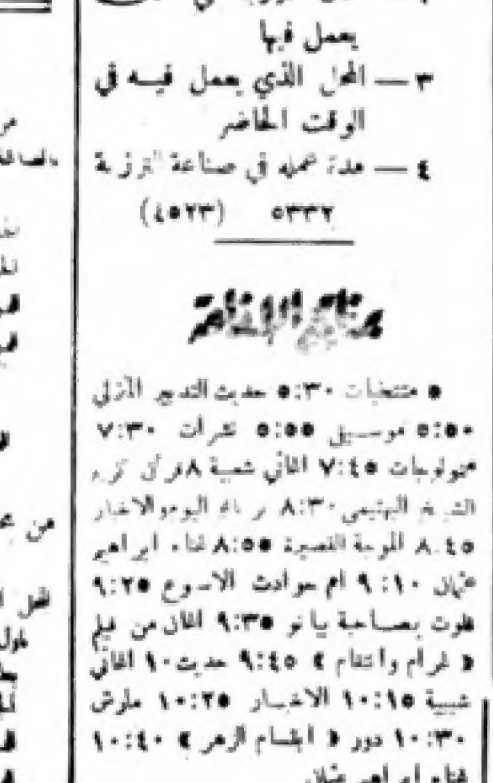 يعمل فيها
٣ — المحل الذي يعمل فيه في
الوقت الحاضر
٤ — مدة عمله في صناعة الترزية
٥٣٣٢ (٤٥٢٣)
٥ منتخبات ٥:٣٠ حديث التدبير المنزلي
٥:٥٠ موسيقى ٥:٥٥ نشرات ٧:٣٠
منولوجات ٧:٤٥ اغاني شعبية ٨ قرآن كريم
الشيخ البهتيمي ٨:٣٠ برنامج اليوم والاخبار
٨.٤٥ الموجة القصيرة ٨:٥٥ غناء ابراهيم
عثمان ٩:١٠ اهم حوادث الاسبوع ٩:٢٥
فلوت بمصاحبة بيانو ٩:٣٥ الحان من فيلم
« غرام وانتقام » ٩:٤٥ حديث ١٠ اغاني
شعبية ١٠:١٥ الاخبار ١٠:٢٥ مارش
١٠:٣٠ دور « ابتسام الزهر » ١٠:٤٠
غناء ابراهيم عثمان
هن
من